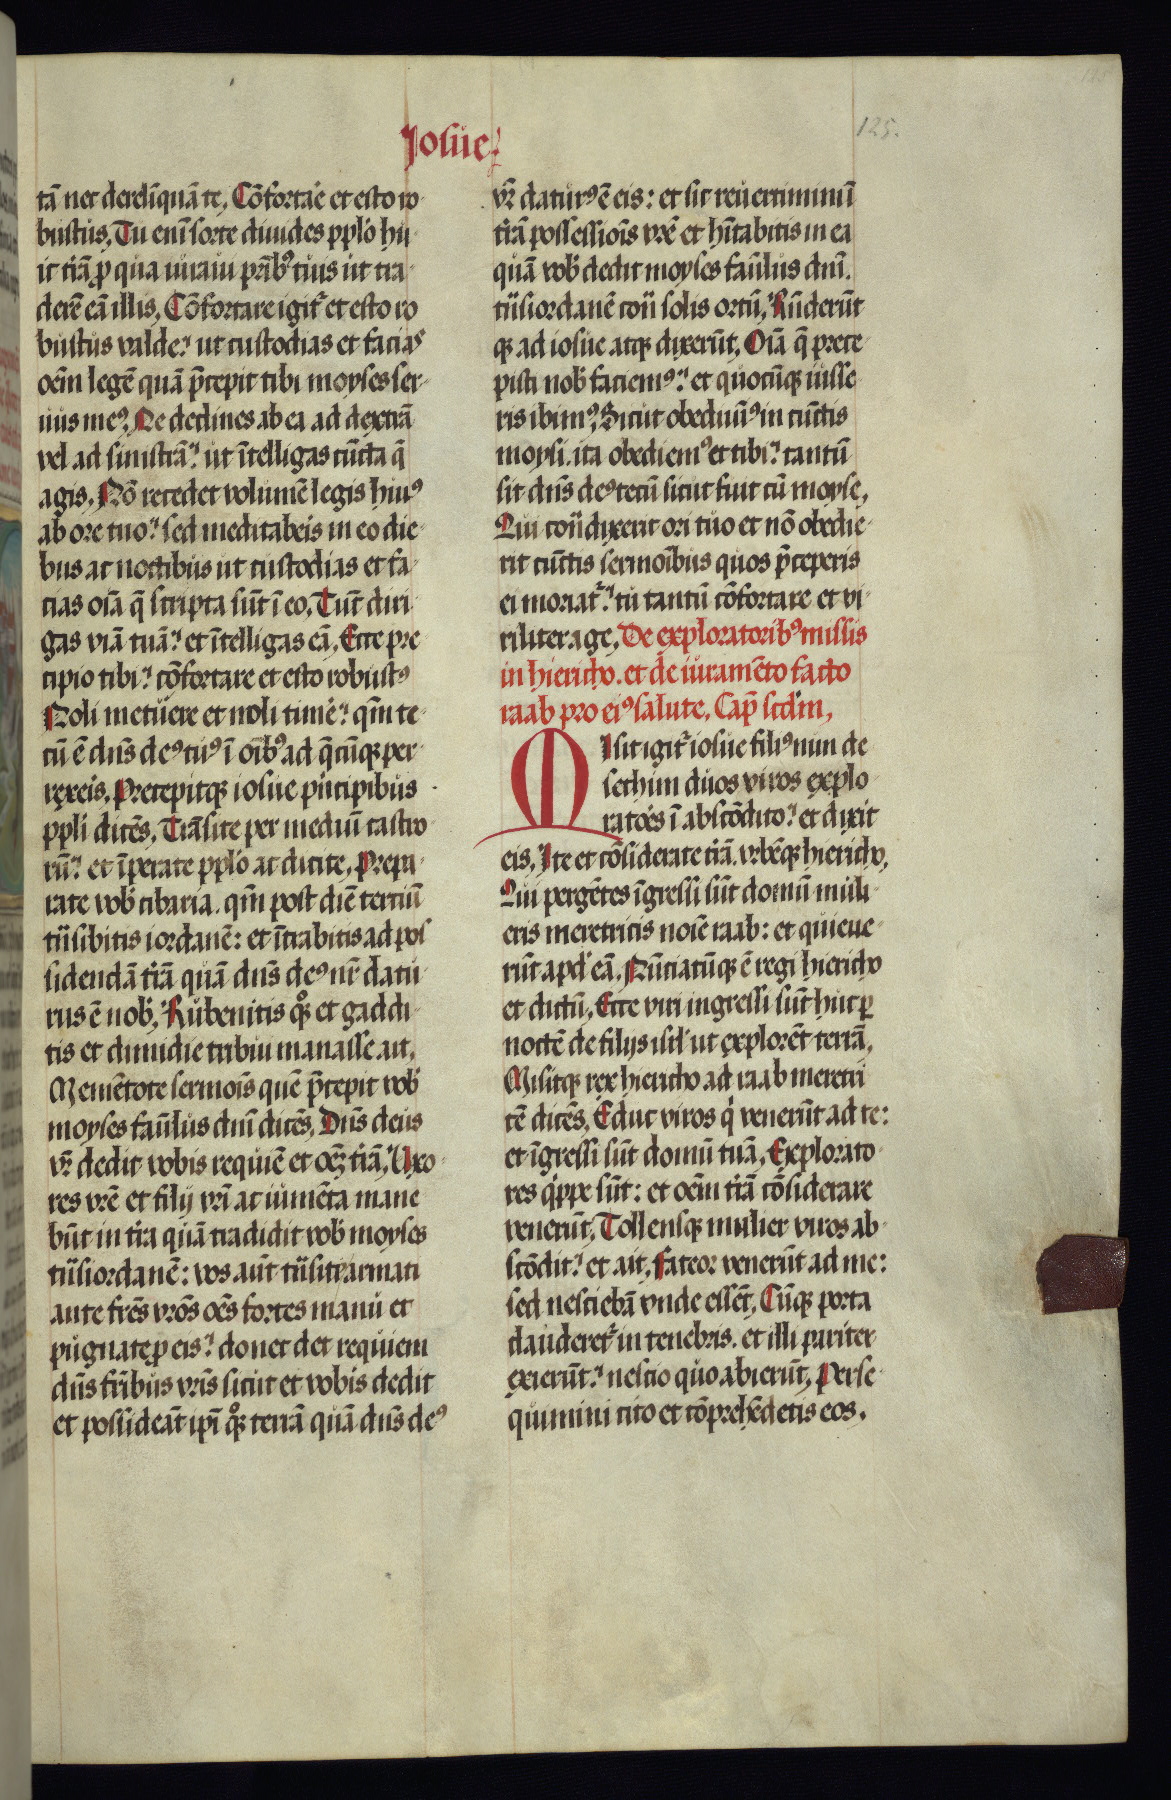 Iosue
125.
tā nec derelīquā te, Cōfortaˀe et esto ro
bustus, Tu enī sorte diuides pplō hu
ic t̄rā ꝓ qua iuraui pr̄ibꝰ tuis ut tra
derē eā illis, Cōfortare igit᷑ et esto ro
bustus valde: ut custodias et facias
oēm legē quā p̄cepit tibi moyses ser
uus meꝰ, Ne declines ab ea ad dextrā
vel ad sinistrā: ut ītelligas cūcta q̄
agis, Nō recedet volumē legis huiꝰ
ab ore tuo: sed meditaberis in eo die
bus ac noctibus ut custodias et fa
cias oīa q̄ scripta sūt ī eo, Tūc diri
gas viā tuā: et ītelligas eā, Ecce pre
cipio tibi: cōfortare et esto robustꝰ
Noli metuere et noli timeˀe: qm̄ te
cū ē dn̄s deꝰ tuꝰ ī oībꝰ ad q̄cūqꝫ per
rexeis, Precepitqꝫ iosue pͥncipibus
ppli dicēs, Trāsite per mediū castro
rū: et īperate pplō ac dicite, Prepa
rate vob̄ cibaria. qm̄ post diē tertiū
trāsibitis iordanē: et ītrabitis ad pos
sidendā t̄rā quā dn̄s deꝰ nr̄ datu
rus ē nob̄, Rubenitis qͦqꝫ et gaddi
tis et dimidie tribui manasse ait,
Memētote sermoīs quē p̄cepit vob̄
moyses famulus dn̄i dicēs, Dn̄s deus
vr̄ dedit vobis requiē et oēꝫ t̄rā, Uxo
res vr̄e et filij vr̄i ac iumēta mane
būt in t̄ra quā tradidit vob̄ moyses
trās iordanē: vos aūt trāsite armati
ante fr̄es vr̄os oēs fortes manu et
pugnate ꝓ eis: donec det requiem
dn̄s fr̄ibus vr̄is sicut et vobis dedit
et possideāt ipī qͦqꝫ terrā quā dn̄s deꝰ
vr̄ daturꝰ ē eis: et sic reuertimini ī
t̄rā possessiōis vr̄e et hītabitis in ea
quā vob̄ dedit moyses famulus dn̄i.
trās iordanē cōtra solis ortū, Rn̄derūt
qꝫ ad iosue atqꝫ dixerūt, Oīa q̄ prece
pisti nob̄ faciemꝰ: et quocūqꝫ misse
ris ibimꝰ, Sicut obediuimꝰ in cūctis
moysi. ita obediemꝰ et tibi: tantū
sit dn̄s deꝰ tecū sicut fuit cū moyse,
Qui cōtradixerit ori tuo et nō obedie
rit cūctis sermoībus quos p̄ceperis
ei moriat᷑: tu tantū cōfortare et vi
riliter age, De exploratoribꝰ missis
in hiericho. et de iuramēto facto
raab pro eiꝰ salute, Cap̄ scdm̄,
Misit igit᷑ iosue filiꝰ nun de
sethim duos viros explo
ratoˀes ī abscōdito: et dixit
eis, Ite et cōsiderate t̄rā. vrbēqꝫ hiericho,
Qui pergētes īgressi sūt domū muli
eris meretricis noīe raab: et quieue
rūt apd̄ eā, Nūciatūqꝫ ē regi hiericho
et dictū, Ecce viri ingressi sūt huc ꝑ
noctē de filijs isrl̄ ut explorēt terrā,
Misitqꝫ rex hiericho ad raab meretri
cē dicēs, Educ viros qͥ venerūt ad te:
et īgressi sūt domū tuā, Explorato
res qͥppe sūt: et oēm t̄rā cōsiderare
venerūt, Tollensqꝫ mulier viros ab
scōdit: et ait, Fateor venerūt ad me:
sed nesciebā vnde essēt, Cūqꝫ porta
clauderet᷑ in tenebris. et illi pariter
exierūt: nescio quo abierūt, Perse
quimini cito et cōprehēdetis eos.